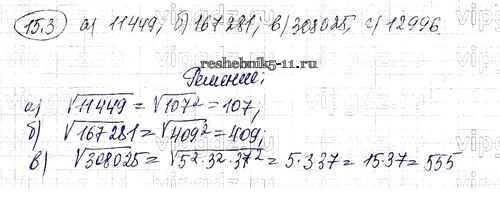 15.3 а) 11449; б) 167281; в) 308025; с) 12996.
reshebnik5-11.ru
Решение:
а) √11449 = √107² = 107;
б) √167281 = √409² = 409;
в) √308025 = √5²·3²·37² = 5·337 = 15·37 = 555